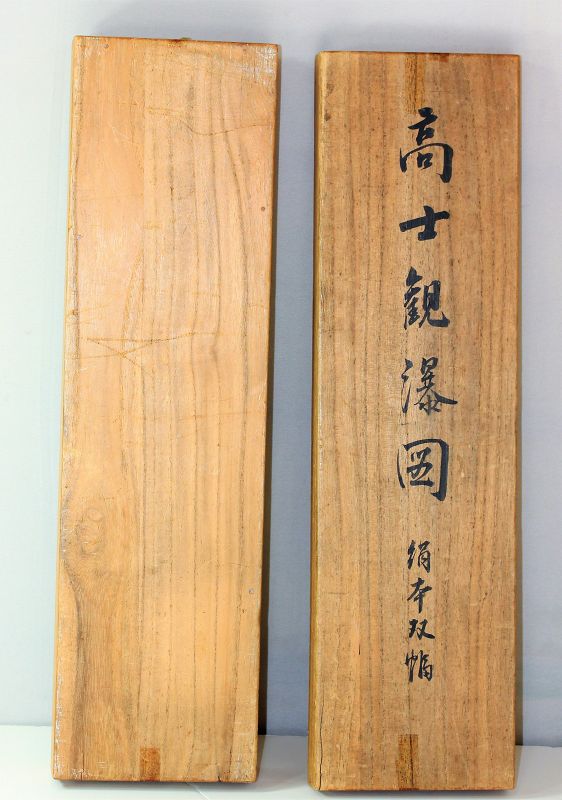 高士觀瀑図 絹本双幅